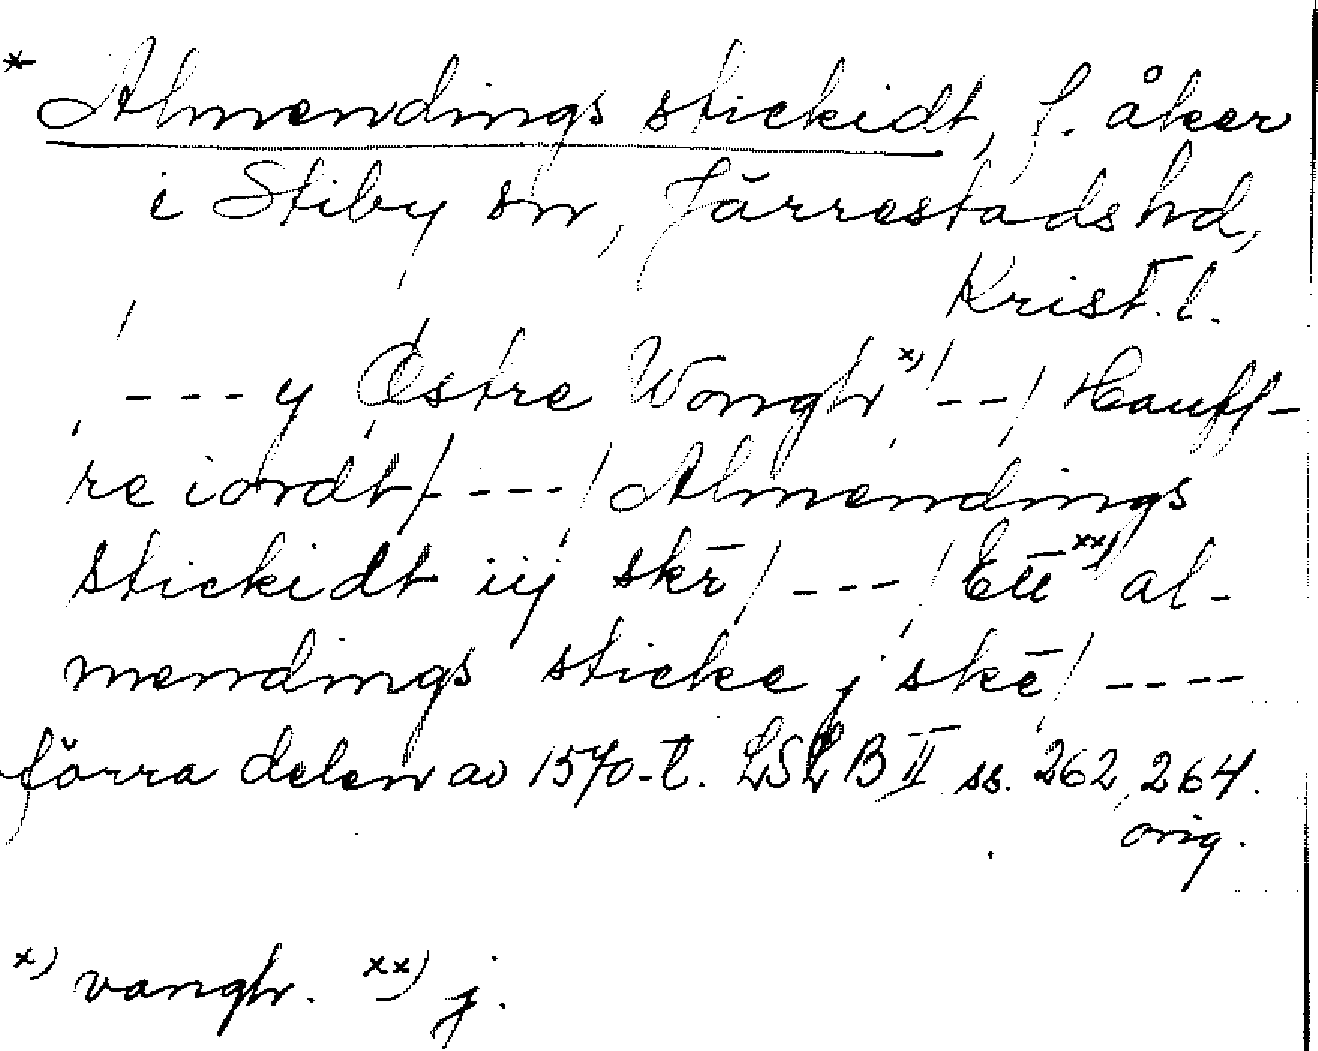 * Almendings stickidt, f. åker
i Stiby sn, Järrestads hd,
Krist. l.
/ --- y Østre Wongh x) / -- / Hauff-
re iordt / --- / Almendings
stickidt iij skr̄ / --- / Ett xx) al-
mendings sticke j skē / ----
förra delen av 1570-t. LSLB II ss. 262, 264.
orig.
x) vangh. xx) j.